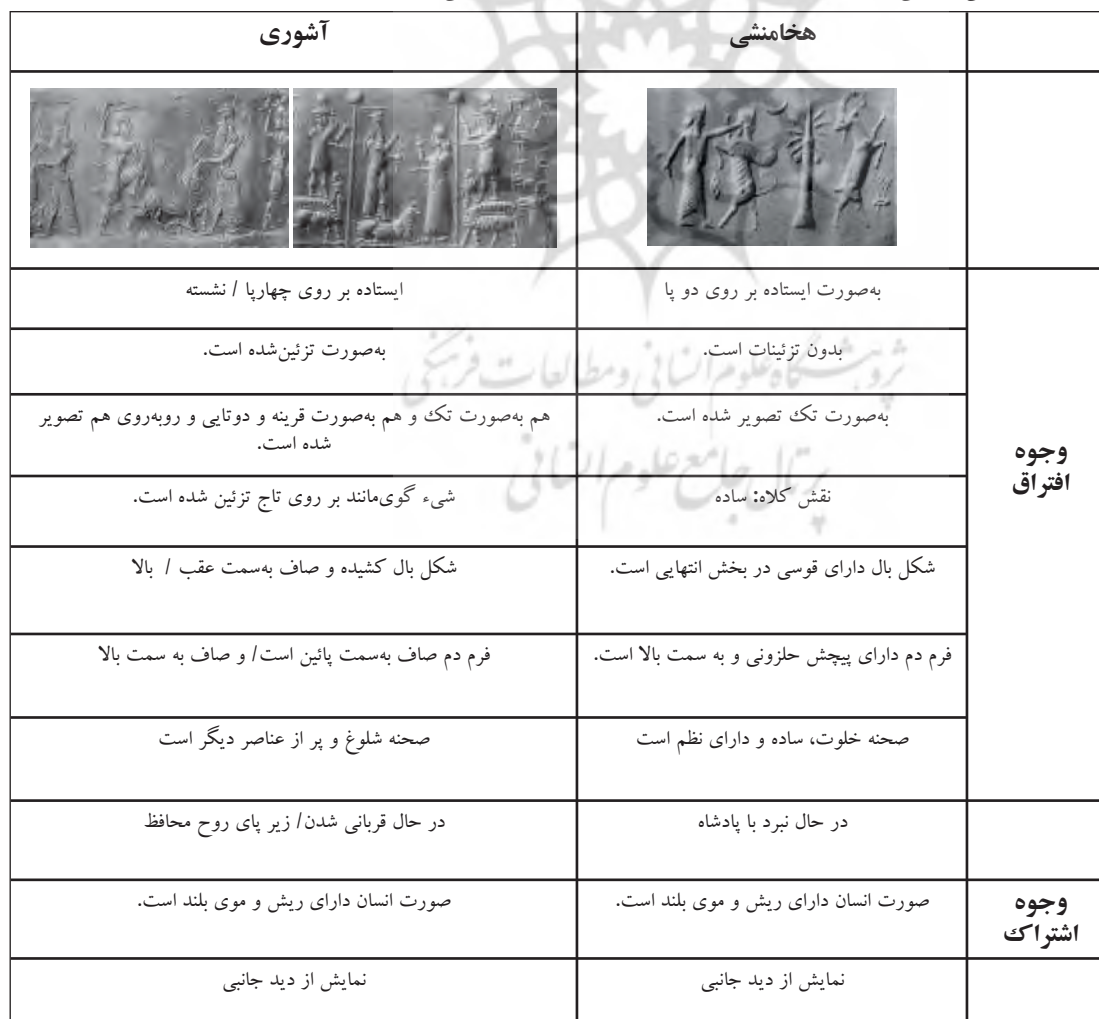 هخامنشی
آشوری
وجوه
افتراق
به‌صورت ایستاده بر روی دو پا
ایستاده بر روی چهارپا / نشسته
بدون تزئینات است.
به‌صورت تزئین‌شده است.
به‌صورت تک تصویر شده است.
هم به‌صورت تک و هم به‌صورت قرینه و دوتایی و روبه‌روی هم تصویر
شده است.
نقش کلاه: ساده
شیء گوی‌مانند بر روی تاج تزئین شده است.
شکل بال دارای قوسی در بخش انتهایی است.
شکل بال کشیده و صاف به‌سمت عقب / بالا
فرم دم دارای پیچش حلزونی و به سمت بالا است.
فرم دم صاف به‌سمت پائین است/ و صاف به سمت بالا
صحنه خلوت، ساده و دارای نظم است
صحنه شلوغ و پر از عناصر دیگر است
در حال نبرد با پادشاه
در حال قربانی شدن/ زیر پای روح محافظ
وجوه
اشتراک
صورت انسان دارای ریش و موی بلند است.
صورت انسان دارای ریش و موی بلند است.
نمایش از دید جانبی
نمایش از دید جانبی
پژوهشگاه علوم انسانی و مطالعات فرهنگی
پرتال جامع علوم انسانی